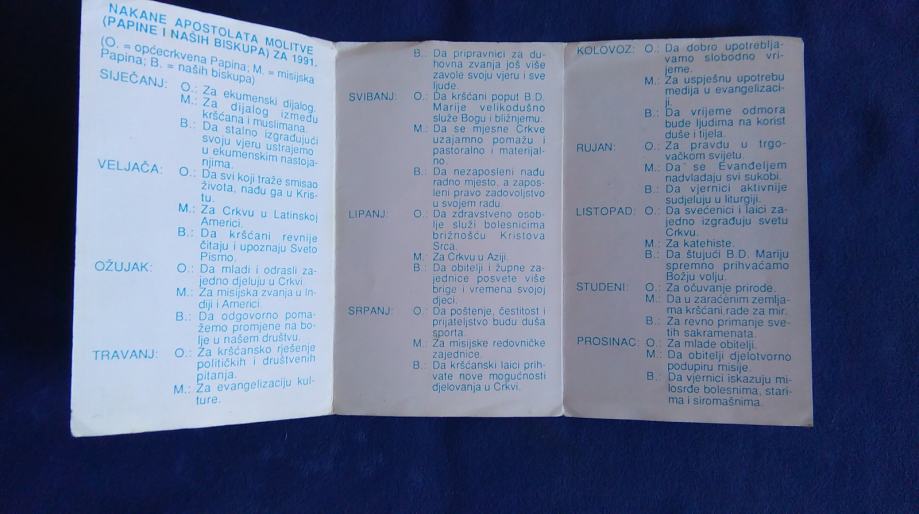 NAKANE APOSTOLATA MOLITVE
(PAPINE I NAŠIH BISKUPA) ZA 1991.
(O. = općecrkvena Papina; M. = misijska
Papina; B. = naših biskupa)
SIJEČANJ: O.: Za ekumenski dijalog.
M.: Za dijalog između
kršćana i muslimana.
B.: Da stalno izgrađujući
svoju vjeru ustrajemo
u ekumenskim nastoja-
njima.
VELJAČA: O.: Da svi koji traže smisao
života, nađu ga u Kris-
tu.
M.: Za Crkvu u Latinskoj
Americi.
B.: Da kršćani revnije
čitaju i upoznaju Sveto
Pismo.
OŽUJAK: O.: Da mladi i odrasli za-
jedno djeluju u Crkvi.
M.: Za misijska zvanja u In-
diji i Americi.
B.: Da odgovorno poma-
žemo promjene na bo-
lje u našem društvu.
TRAVANJ: O.: Za kršćansko rješenje
političkih i društvenih
pitanja.
M.: Za evangelizaciju kul-
ture.
B.: Da pripravnici za du-
hovna zvanja još više
zavole svoju vjeru i sve
ljude.
SVIBANJ: O.: Da kršćani poput B.D.
Marije velikodušno
služe Bogu i bližnjemu.
M.: Da se mjesne Crkve
uzajamno pomažu i
pastoralno i materijal-
no.
B.: Da nezaposleni nađu
radno mjesto, a zapos-
leni pravo zadovoljstvo
u svojem radu.
LIPANJ: O.: Da zdravstveno osob-
lje služi bolesnicima
brižnošću Kristova
Srca.
M.: Za Crkvu u Aziji.
B.: Da obitelji i župne za-
jednice posvete više
brige i vremena svojoj
djeci.
SRPANJ: O.: Da poštenje, čestitost i
prijateljstvo budu duša
sporta.
M.: Za misijske redovničke
zajednice.
B.: Da kršćanski laici prih-
vate nove mogućnosti
djelovanja u Crkvi.
KOLOVOZ: O.: Da dobro upotreblja-
vamo slobodno vri-
jeme.
M.: Za uspješnu upotrebu
medija u evangelizaci-
ji.
B.: Da vrijeme odmora
bude ljudima na korist
duše i tijela.
RUJAN: O.: Za pravdu u trgo-
vačkom svijetu.
M.: Da se Evanđeljem
nadvladaju svi sukobi.
B.: Da vjernici aktivnije
sudjeluju u liturgiji.
LISTOPAD: O.: Da svećenici i laici za-
jedno izgrađuju svetu
Crkvu.
M.: Za katehiste.
B.: Da štujući B.D. Mariju
spremno prihvaćamo
Božju volju.
STUDENI: O.: Za očuvanje prirode.
M.: Da u zaraćenim zemlja-
ma kršćani rade za mir.
B.: Za revno primanje sve-
tih sakramenata.
PROSINAC: O.: Za mlade obitelji.
M.: Da obitelji djelotvorno
podupiru misije.
B.: Da vjernici iskazuju mi-
losrđe bolesnima, stari-
ma i siromašnima.